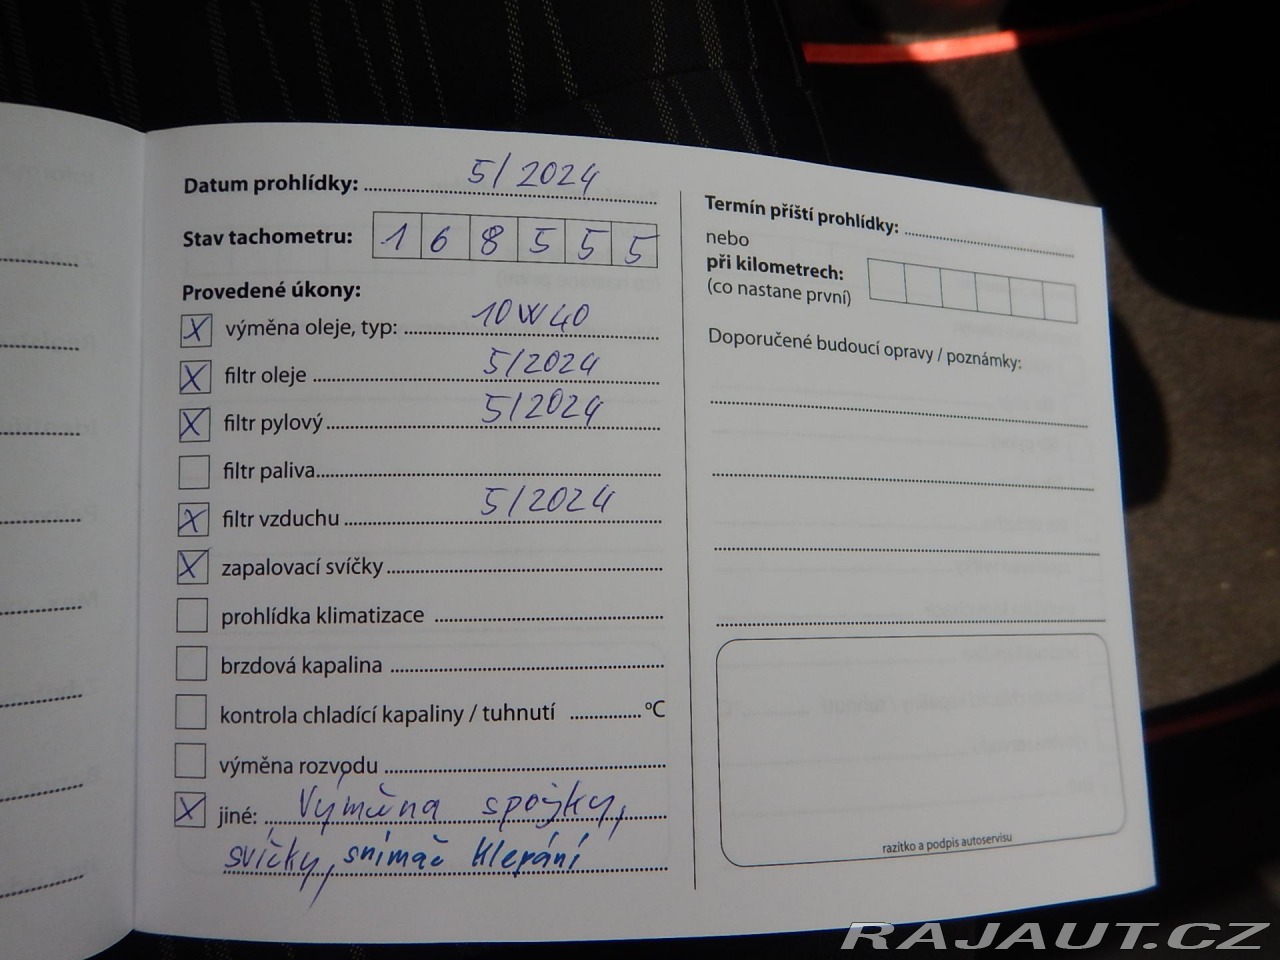 Datum prohlídky: 5/2024
Stav tachometru: 1 6 8 5 5 5
Provedené úkony:
X výměna oleje, typ: 10W40
X filtr oleje 5/2024
X filtr pylový 5/2024
filtr paliva
X filtr vzduchu 5/2024
X zapalovací svíčky
prohlídka klimatizace
brzdová kapalina
kontrola chladící kapaliny / tuhnutí °C
výměna rozvodu
X jiné: Výměna spojky,
svíčky, snímač klepání
Termín příští prohlídky:
nebo
při kilometrech:
(co nastane první)
Doporučené budoucí opravy / poznámky:
razítko a podpis autoservisu
RAJAUT.CZ